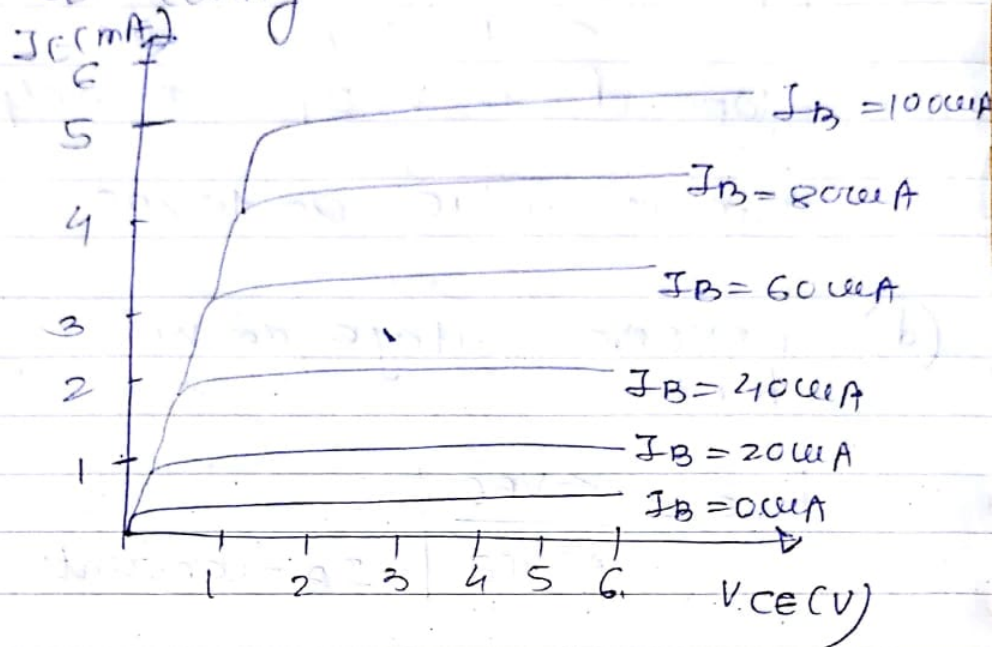 IC(mA)
6
5
4
3
2
1
IB = 100 µA
IB = 80 µA
IB = 60 µA
IB = 40 µA
IB = 20 µA
IB = 0 µA
1 2 3 4 5 6.
VCE(V)
(d